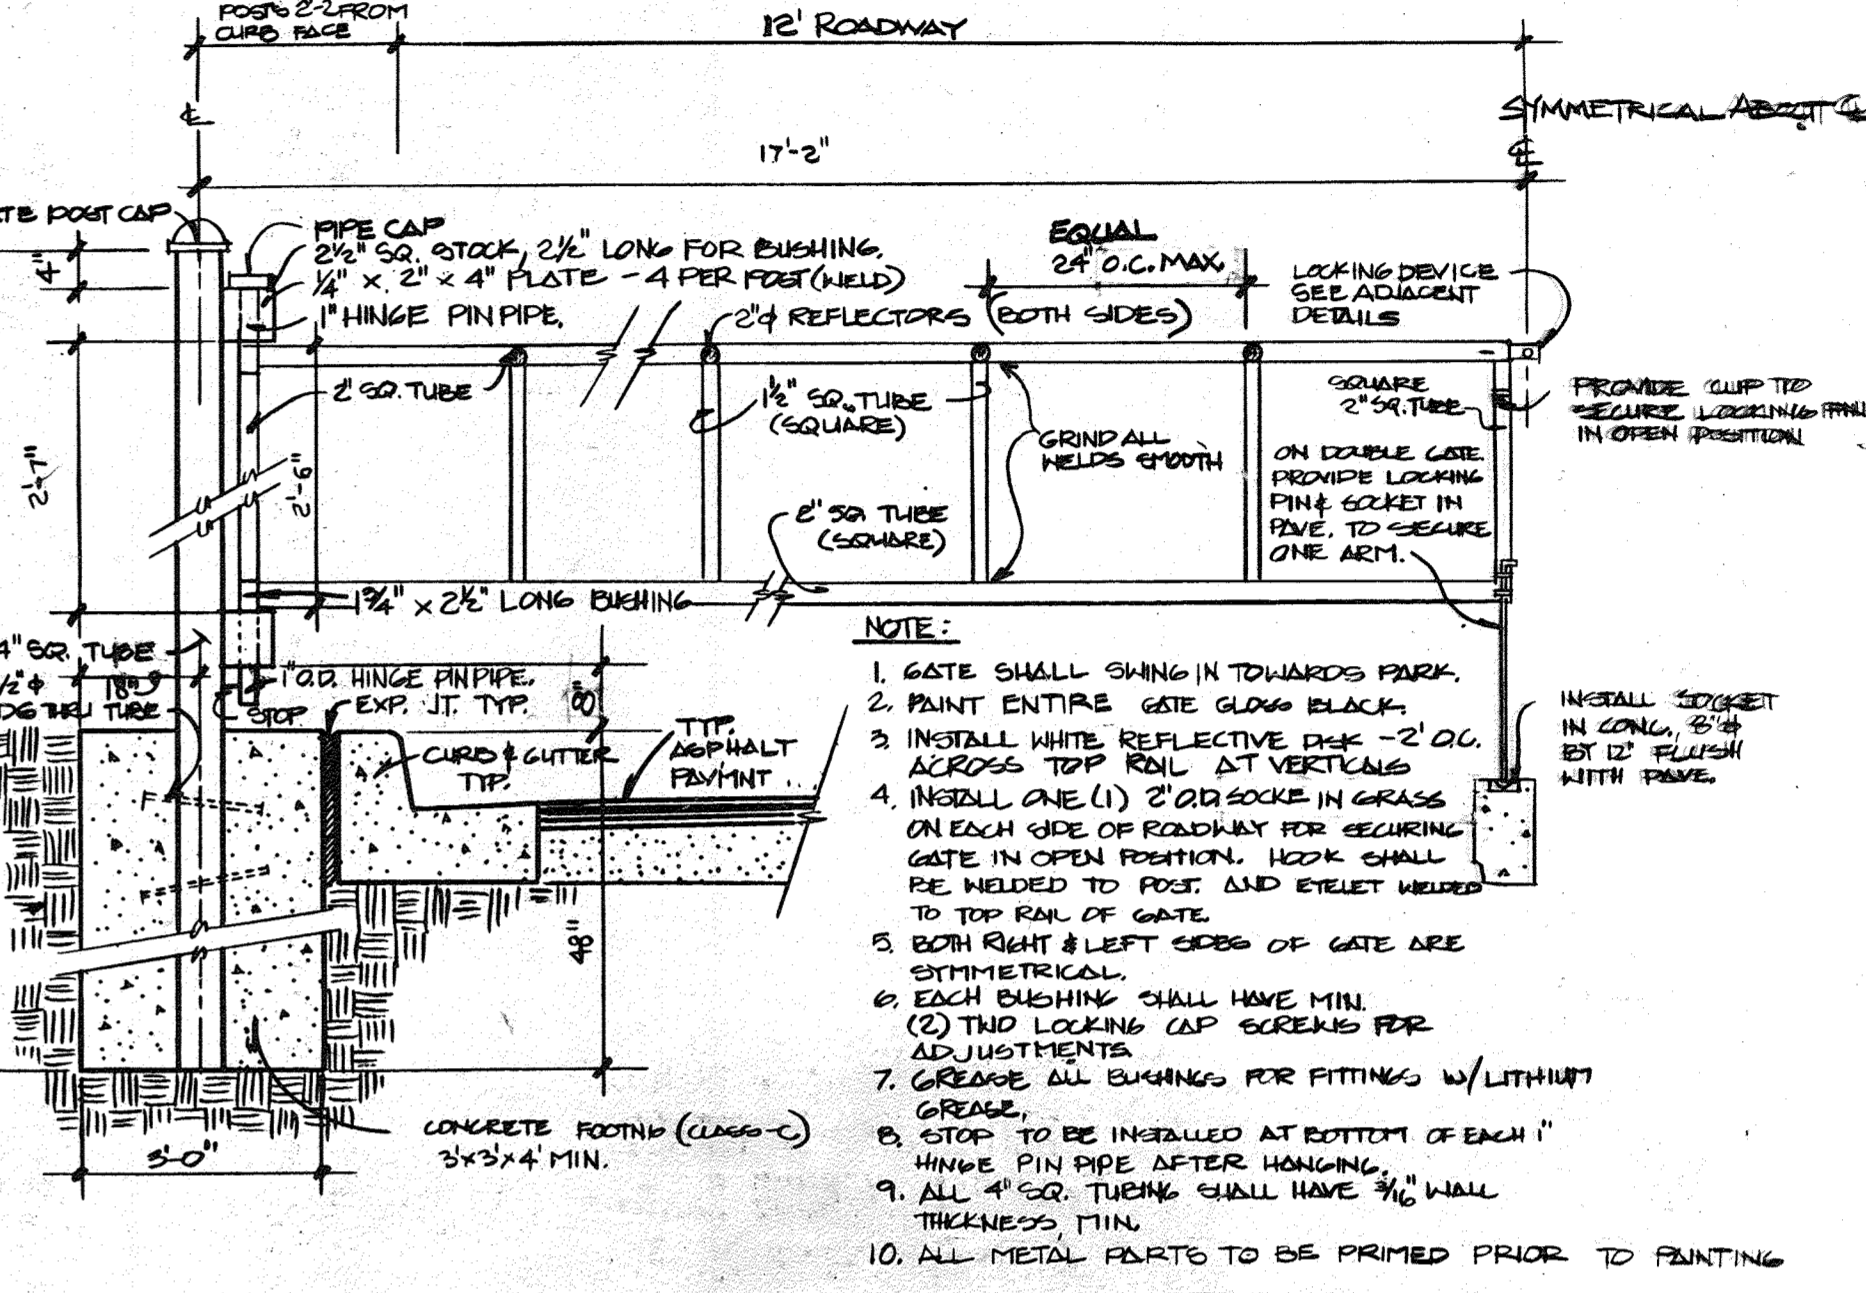 POSTS 2'-2 FROM
CURB FACE
12' ROADWAY
SYMMETRICAL ABOUT ℄
℄
℄
17'-2"
POST CAP
4"
PIPE CAP
2½" SQ. STOCK, 2½" LONG FOR BUSHING.
¼" x 2" x 4" PLATE - 4 PER POST (WELD)
1" HINGE PIN PIPE.
EQUAL
24" O.C. MAX.
2"⌀ REFLECTORS (BOTH SIDES)
LOCKING DEVICE
SEE ADJACENT
DETAILS
2" SQ. TUBE
1½" SQ. TUBE
(SQUARE)
GRIND ALL
WELDS SMOOTH
SQUARE
2" SQ. TUBE
PROVIDE CLIP TO
SECURE LOCKING
IN OPEN POSITION
ON DOUBLE GATE
PROVIDE LOCKING
PIN & SOCKET IN
PAVE. TO SECURE
ONE ARM.
2'-7"
2'-6"
2" SQ TUBE
(SQUARE)
1¾" x 2½" LONG BUSHING
4" SQ. TUBE
18"
THRU TUBE
1" O.D. HINGE PIN PIPE.
STOP
EXP. JT. TYP.
8"
CURB & GUTTER
TYP.
TYP.
ASPHALT
PAV'MNT
INSTALL SOCKET
IN CONC., 3"⌀
BY 12" FLUSH
WITH PAVE.
48"
3'-0"
CONCRETE FOOTNG (CLASS-C)
3'x3'x4' MIN.
NOTE:
1. GATE SHALL SWING IN TOWARDS PARK.
2. PAINT ENTIRE GATE GLOSS BLACK.
3. INSTALL WHITE REFLECTIVE DISK - 2' O.C.
ACROSS TOP RAIL AT VERTICALS
4. INSTALL ONE (1) 2" O.D. SOCKE IN GRASS
ON EACH SIDE OF ROADWAY FOR SECURING
GATE IN OPEN POSITION. HOOK SHALL
BE WELDED TO POST. AND EYELET WELDED
TO TOP RAIL OF GATE.
5. BOTH RIGHT & LEFT SIDES OF GATE ARE
SYMMETRICAL.
6. EACH BUSHING SHALL HAVE MIN.
(2) TWO LOCKING CAP SCREWS FOR
ADJUSTMENTS
7. GREASE ALL BUSHINGS FOR FITTINGS W/LITHIUM
GREASE.
8. STOP TO BE INSTALLED AT BOTTOM OF EACH 1"
HINGE PIN PIPE AFTER HANGING.
9. ALL 4" SQ. TUBING SHALL HAVE 3/16" WALL
THICKNESS, MIN.
10. ALL METAL PARTS TO BE PRIMED PRIOR TO PAINTING